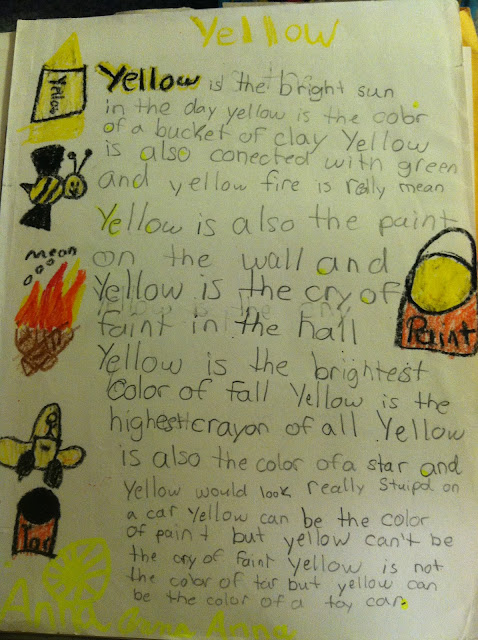 Yellow
Yellow
Yellow is the bright sun
in the day yellow is the color
of a bucket of clay Yellow
is also conected with green
and yellow fire is rally mean
Yellow is also the paint
mean
on the wall and
Yellow is the cry of
faint in the hall
Paint
Yellow is the brightest
color of fall Yellow is the
highest crayon of all Yellow
is also the color of a star and
Yellow would look really Stuipd on
a car Yellow can be the color
of paint but yellow can't be
Tar
the cry of faint Yellow is not
the color of tar but yellow can
be the color of a toy car.
Anna Anna